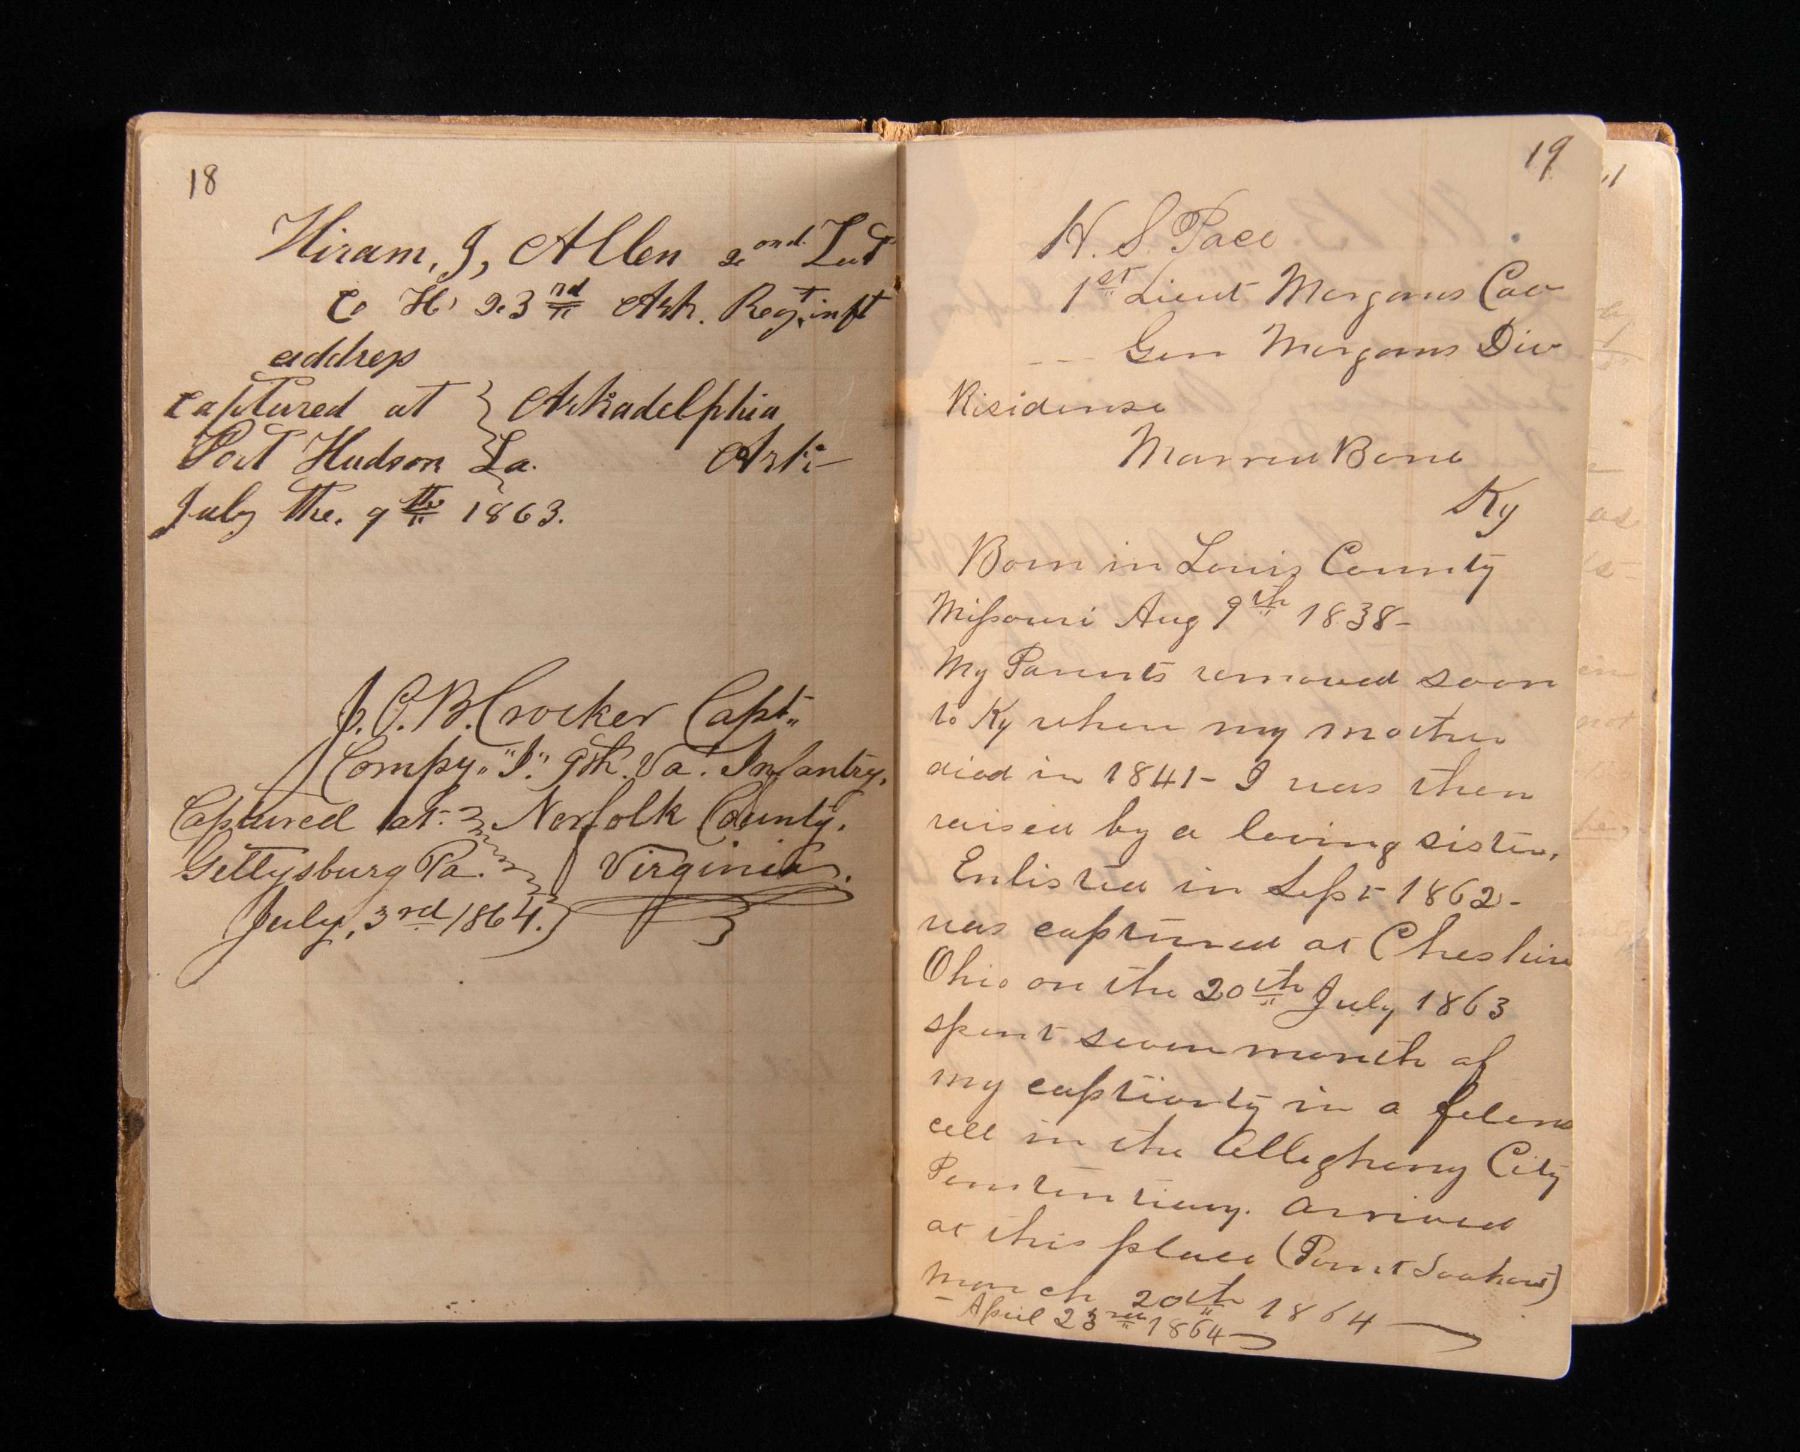 18
Hiram, J, Allen 2ond. Leut
Co H. 23nd Ark. Regt. inft
address
captured at } Arkadelphia
Port Hudson La. Ark-
July the. 9th 1863.
J. C. B. Crocker Capt.
Compy. "I." 9th. Va. Infantry.
Captured at. } Norfolk County.
Gettysburg Pa. } Virginia.
July, 3rd 1864.
19
H. S. Pace
1st Lieut Morgans Cav
-- Gen Morgans Div
Risidense
Marrow Bone
Ky
Born in Louis County
Missouri Aug 9th 1838-
My Parents removed soon
to Ky when my mother
died in 1841- I was then
raised by a loving sister.
Enlisted in Sept 1862-
was captured at Cheshire
Ohio on the 20th July 1863
spent seven month of
my captivity in a felens
cell in the Allegheny City
Penitentiary. Arrived
at this place (Point Lookout)
March 20th 1864
- April 23rd 1864